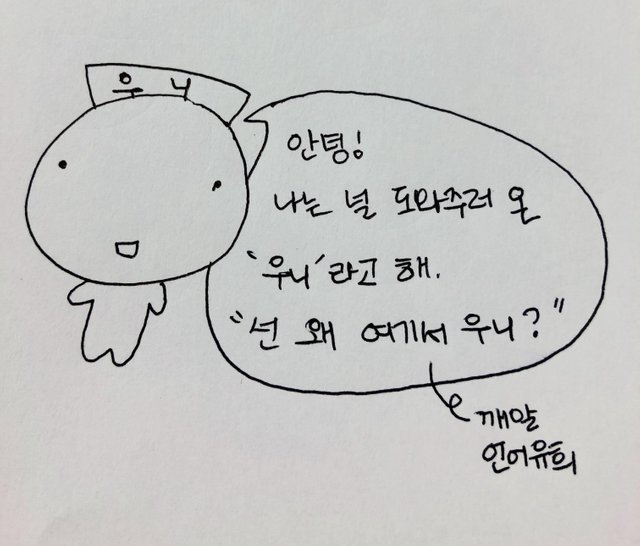 우니
안텽!
나는 널 도와주러 온
'우니'라고 해.
"넌 왜 여기서 우니?"
깨알
언어유희